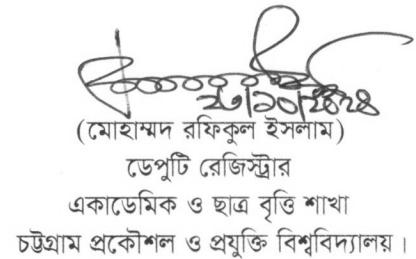 ২৩/১০/২০২৪
(মোহাম্মদ রফিকুল ইসলাম)
ডেপুটি রেজিস্ট্রার
একাডেমিক ও ছাত্র বৃত্তি শাখা
চট্টগ্রাম প্রকৌশল ও প্রযুক্তি বিশ্ববিদ্যালয়।